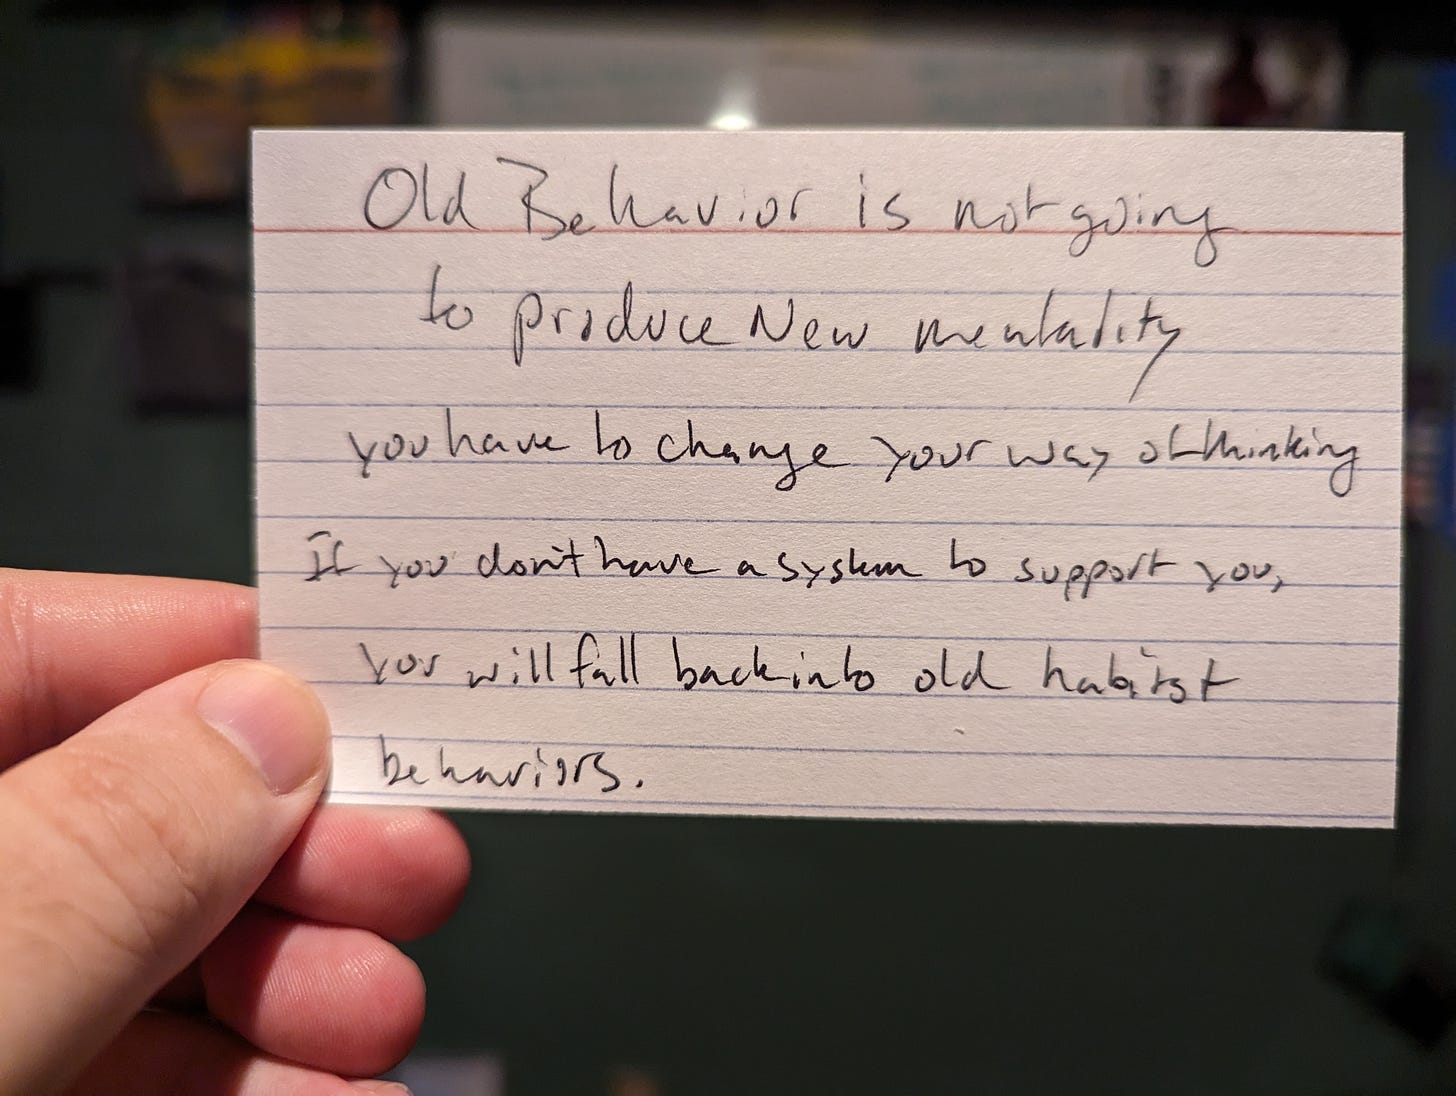 Old Behavior is not going
to produce New mentality
you have to change your way of thinking
If you don't have a system to support you,
you will fall back into old habits +
behaviors.